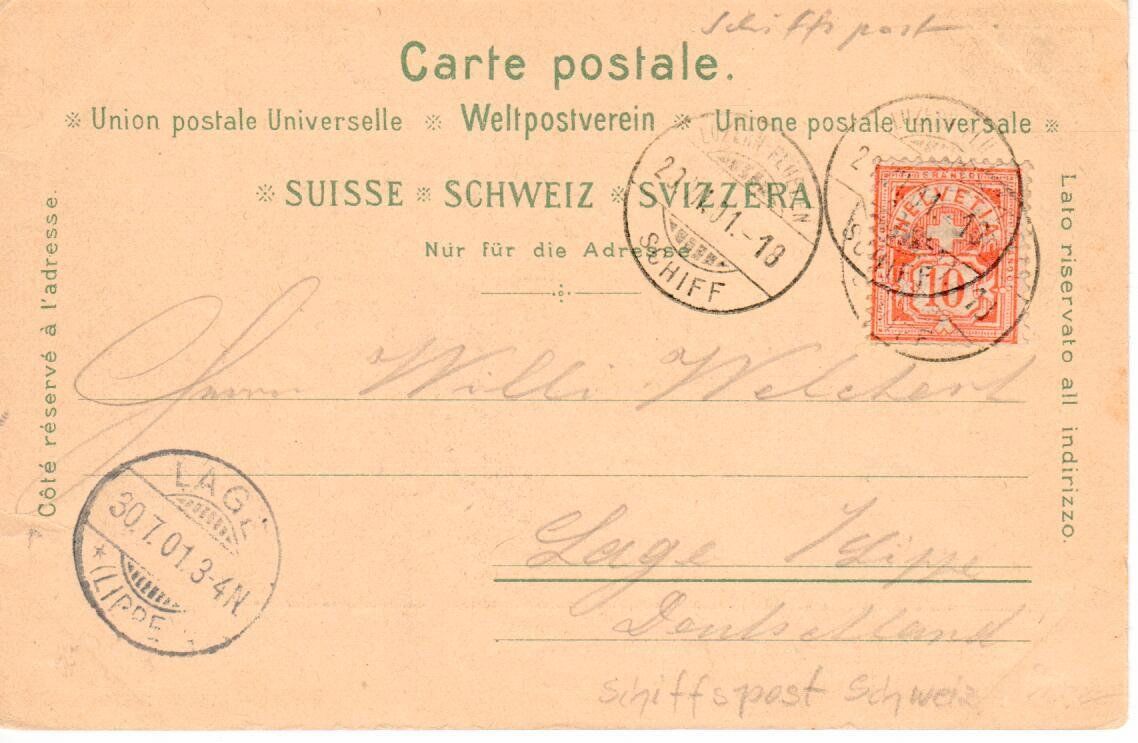 Schiffspost
Carte postale.
※ Union postale Universelle ※ Weltpostverein ※ Unione postale universale ※
※ SUISSE ※ SCHWEIZ ※ SVIZZERA
Nur für die Adresse
Côté réservé à l'adresse.
Lato riservato all indirizzo.
LUZERN-FLUELEN
VII.01.-18
SCHIFF
SCHIFF
FRANCO
HELVETIA
10
Herrn Willi Welchert
LAGE
30.7.01.3-4N.
* (LIPPE)
Lage /Lippe
Deutschland
Schiffspost Schweiz